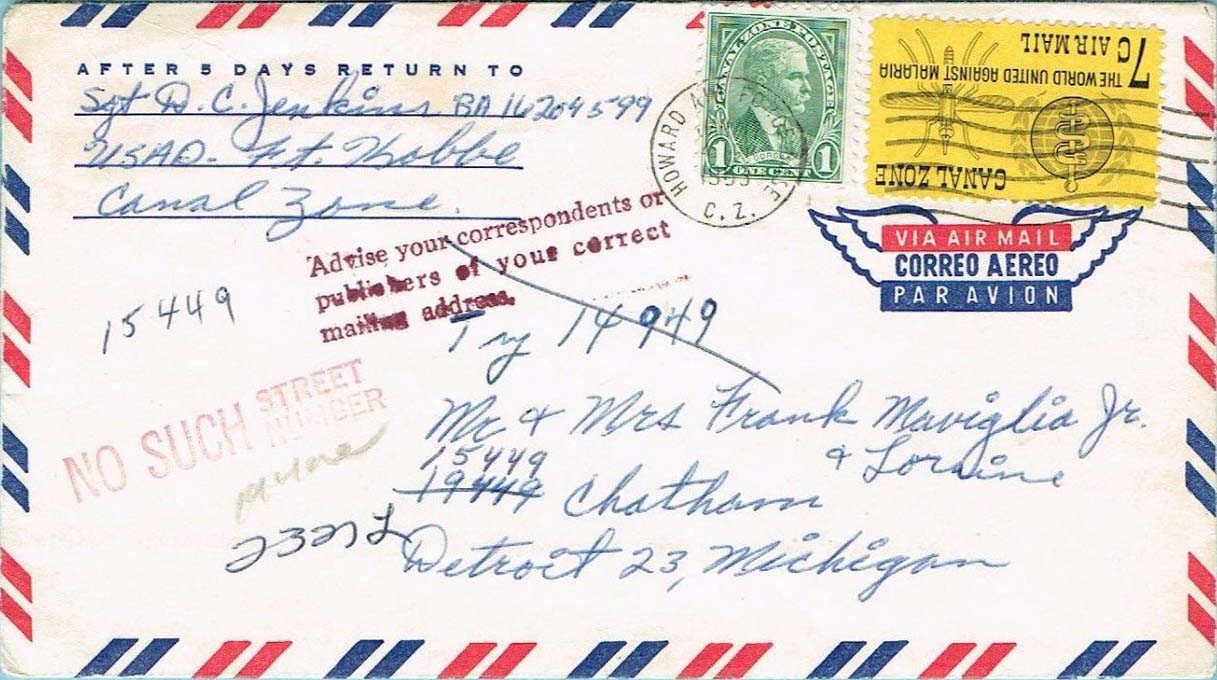 AFTER 5 DAYS RETURN TO
Sgt D. C. Jenkins RA 16204599
USAD - Ft. Kobbe
Canal Zone.
CANAL ZONE POSTAGE
1 1
ONE CENT
HOWARD AIR FORCE
C. Z.
7c AIR MAIL
THE WORLD UNITED AGAINST MALARIA
CANAL ZONE
VIA AIR MAIL
CORREO AEREO
PAR AVION
Advise your correspondents or
publishers of your correct
mailing address.
15449
Try 14949
NO SUCH STREET
NUMBER
Mr & Mrs Frank Maviglia Jr.
& Lorraine
15449
19449 Chatham
Detroit 23, Michigan